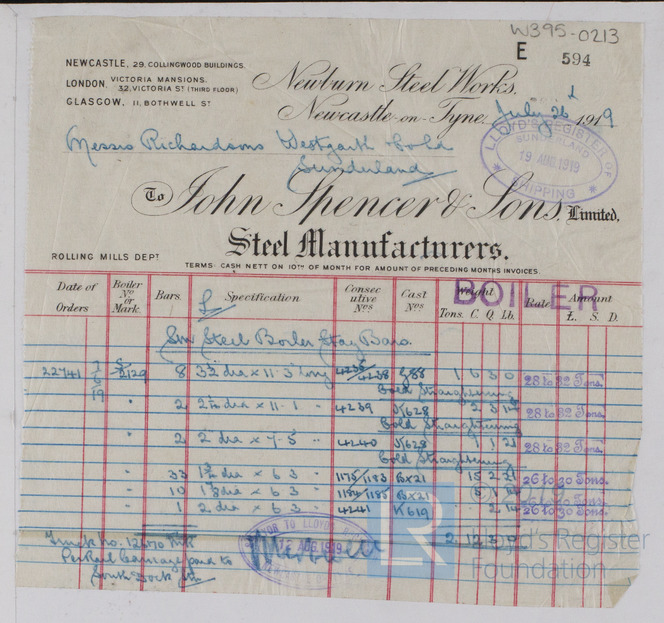 W395-0213
E 594
NEWCASTLE, 29, COLLINGWOOD BUILDINGS.
LONDON, VICTORIA MANSIONS, 32, VICTORIA ST (THIRD FLOOR)
GLASGOW, 11, BOTHWELL ST
Newburn Steel Works,
Newcastle-on-Tyne, July 26 1919
LLOYD'S REGISTER OF SHIPPING
SUNDERLAND
19 AUG. 1919
Messrs Richardsons Westgarth & Co Ld
Sunderland
To John Spencer & Sons, Limited,
Steel Manufacturers.
ROLLING MILLS DEPT
TERMS CASH NETT ON 10TH OF MONTH FOR AMOUNT OF PRECEDING MONTHS INVOICES.
BOILER
Date of Orders Boiler No or Mark. Bars. Specification Consecutive Nos Cast Nos Weight Tons. C. Q. Lb. Rate Amount £. S. D.
Sm Steel Boiler Stay Bars.
22741 S/2129 8 dia x 11.3 long 4238 1 6 3 0 28 to 32 Tons.
Cold Straightening
" 2 dia x 11.1 " 4239 K628 2 3 14 28 to 32 Tons.
Cold Straightening
" 2 2 dia x 7.5 " 4240 K628 1 1 21 28 to 32 Tons.
Cold Straightening
" 33 dia x 6 3 " 1175/1183 BX21 15 2 21 26 to 30 Tons.
" 10 dia x 6 3 " 1184/1185 BX21 26 to 30 Tons.
" 1 2 dia x 6 3 " 4241 K619 2 14 26 to 30 Tons.
2 12 3 0
Truck no.
Per Rail Carriage paid to
South Dock
TO LLOYD'S
AUG. 1919
LR
Lloyd's Register
Foundation